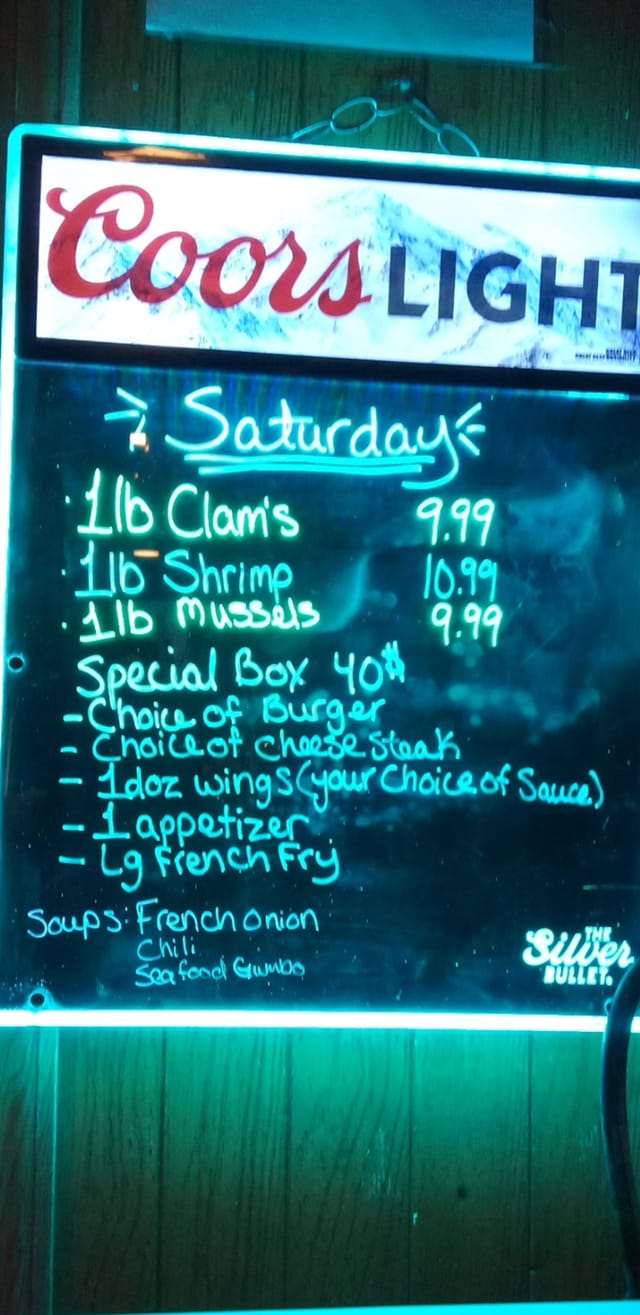 Coors LIGHT
Saturday
· 1lb Clam's 9.99
· 1lb Shrimp 10.99
· 1lb Mussels 9.99
Special Box 40$
- Choice of Burger
- Choice of cheese steak
- 1doz wings (your Choice of Sauce)
- 1 appetizer
- Lg French Fry
Soups: French onion
Chili
Seafood Gumbo
THE
Silver
BULLET.